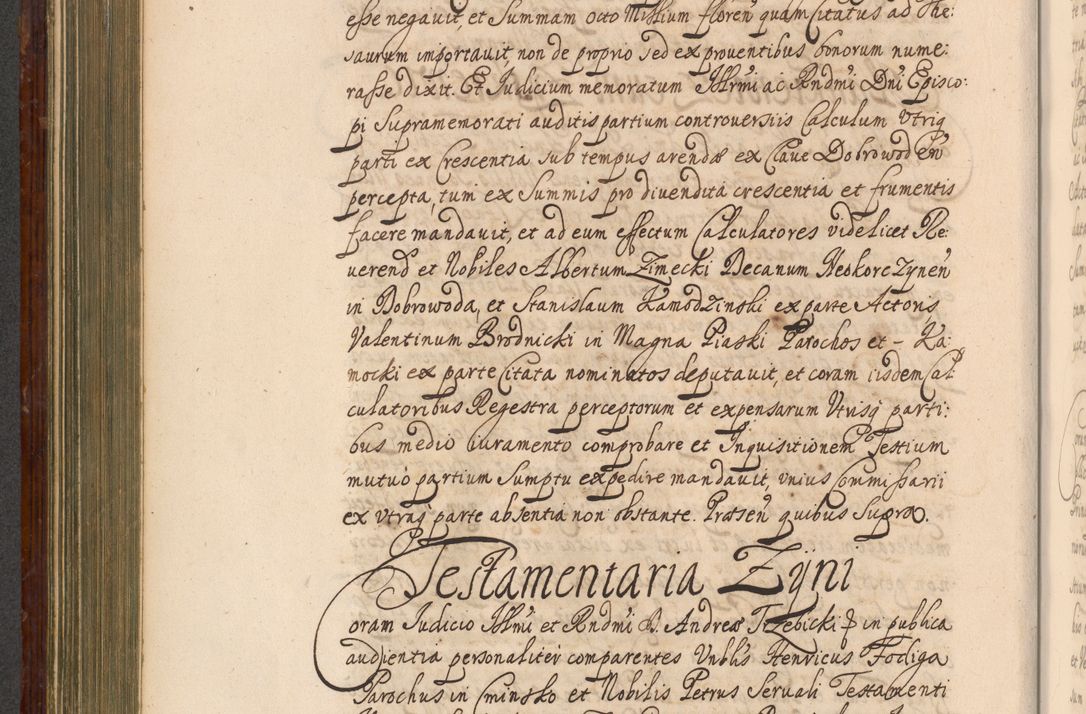 esse negavit, et Summam octo Millium floren quam Citatus ad The:
saurum importavit, non de proprio sed ex proventibus bonorum nume:
rasse dixit. Et Iudicium memoratum Illrmi ac Rndmi Dni Episco:
pi Supramemorati auditis partium controversiis Calculum Utriq
parti ex Crescentia sub tempus arendæ ex Clave Dobrowoden
percepta, tum ex Summis pro divendita crescentia et frumentis
facere mandavit, et ad eum effectum Calculatores videlicet Re:
verend et Nobiles Albertum Zimecki Decanum Neokorczynen
in Dobrowoda, et Stanislaum Kamodzinski ex parte Actoris
Valentinum Brodnicki in Magna Piaski Parochos et – Ka:
mocki ex parte Citata nominatos deputavit, et coram iisdem Cal
culatoribus Regestra perceptorum et expensarum Utrisq parti:
bus medio iuramento comprobare et Inquisitionem Testium
mutuo partium sumptu expedire mandavit, unius Commissarii
ex utraq parte absentia non obstante. Præsen quibus Supra.
Testamentaria Zyni
Coram Iudicio Illrmi et Rndmi D. Andreæ Trzebicki in publica
audientia personaliter comparentes Vnblis Henricus Fodiga
Parochus in Cminsko et Nobilis Petrus Servali Testamenti